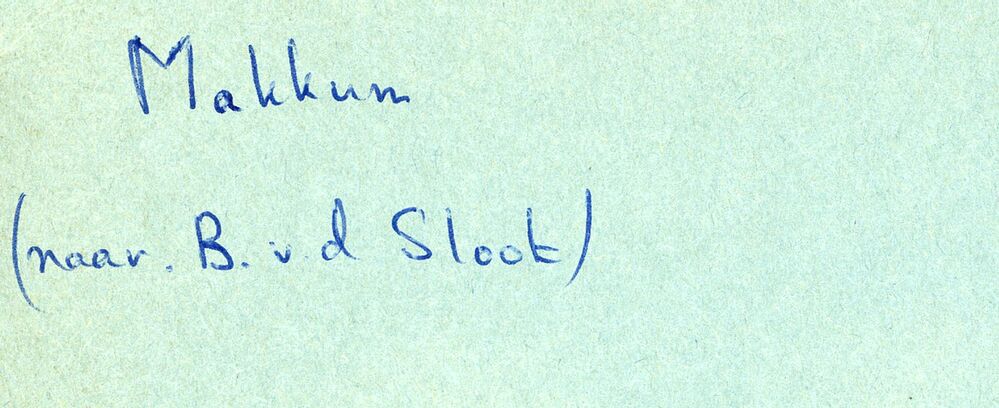 Makkum
(naar. B. v. d Sloot)